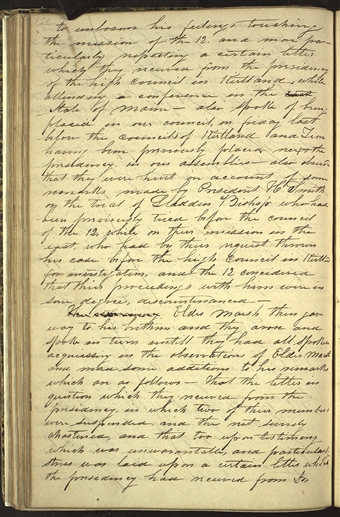 to unbosom his feelings touching
the mission of the 12, and more par-
ticularly respecting a certain letter
which they received from the presidency
of the high council in Kirtland, while
attending a conference in the
State of Maine — also spoke of being
placed in our council, on friday last
below the councils of Kirtland and Zion
having been previously placed next the
presidency, in our assemblies — also observed
that they were hurt on account of some
remarks made by President H. Smith
on the trial of Gladden Bishop who had
been previously tried before the council
of the 12, while on their mission in the
east, who had by their request thrown
his case before the high council in Kirtland
for investigation, and the 12 considered
that their proceedings with him were in
some degree, discountenanced —
Elder Marsh then gave
way to his brethren and they arose and
spoke in turn untill they had all spoken
acquiessing in the observations of Elder Marsh
and made some additions to his remarks
which are as follows — that the letter in
question which they received from the
presidency, in which two of their numbers
were suspended, and the rest severely
chastened, and that too upon testimony
which was unwarantable, and particularly
stress was laid upon a certain letter which
the presidency had received from Dr